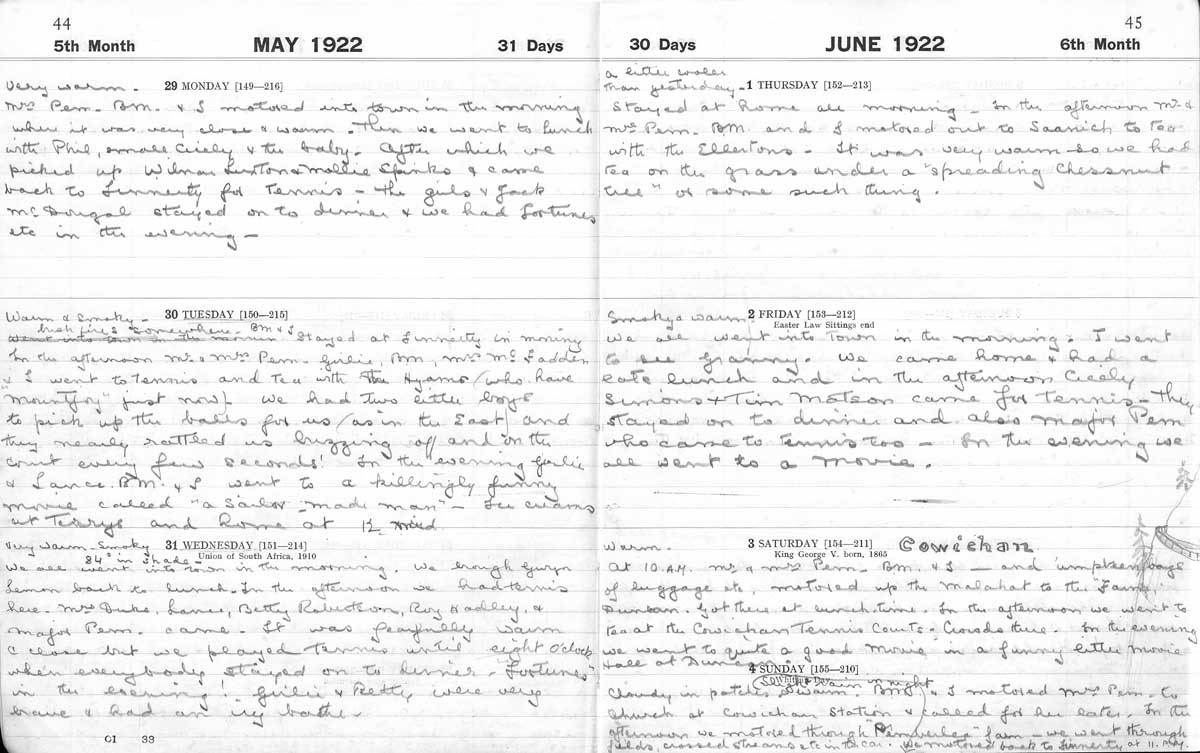 44
5th Month MAY 1922 31 Days
Very warm. 29 MONDAY [149—216]
Mrs Pem. BM. & I motored into town in the morning
where it was very close & warm. Then we went to lunch
with Phil, small Cicely & the baby. After which we
picked up Wilmar & Mollie Spanks & came
back to Finnerty for tennis — the girls & Jack
McDougal stayed on to dinner & we had fortunes
etc in the evening —
Warm & Smoky — 30 TUESDAY [150—215]
bush fires somewhere. BM & I
went into town in the mornin Stayed at Finnerty in morning
In the afternoon Mr & Mrs Pem. Girlie, BM, Mrs McFadden
& I went to tennis and tea with the Hyams (who have
"Mountjoy" just now) we had two little boys
to pick up the balls for us (as in the East) and
they nearly rattled us buzzing off and on the
court every few seconds! In the evening Girlie
& Lance. BM. & I went to a killingly funny
movie called "a Sailor-made man" — Ice creams
at Terrys and home at 12 mid
Very warm — Smoky 31 WEDNESDAY [151—214]
84° in shade — Union of South Africa, 1910
We all went into town in the morning. We brough Gwyn
Lemon back to lunch. In the afternoon we had tennis
here. Mrs Duke, Lance, Betty Robertson, Roy Hadley, &
Major Pem. came. It was fearfully warm
& close but we played tennis until eight o'clock
when everybody stayed on to dinner — "fortunes"
in the evening! Girlie & Betty were very
brave & had an icy bathe.
G1 33
45
30 Days JUNE 1922 6th Month
a little cooler
than yesterday — 1 THURSDAY [152—213]
Stayed at home all morning — In the afternoon Mr &
Mrs Pem. BM. and I motored out to Saanich to tea
with the Ellertons — It was very warm so we had
tea on the grass under a "spreading Chessnut
tree" or some such thing.
Smoky & warm. 2 FRIDAY [153—212]
Easter Law Sittings end
We all went into town in the morning. I went
to see Granny. We came home & had a
late lunch and in the afternoon Cicely
Simons & Tim Matson came for tennis — They
stayed on to dinner and also Major Pem
who came to tennis too — In the evening we
all went to a movie.
Warm. 3 SATURDAY [154—211] Cowichan
King George V. born, 1865
At 10 A.M. Mr & Mrs Pem — BM. & I — and umpteen bags
of luggage etc, motored up the Malahat to the "Farm,"
Duncan. Got there at lunch time. In the afternoon we went to
tea at the Cowichan Tennis Courts — Crowds there. In the evening
we went to quite a good movie in a funny little movie
Hall at Duncan.
4 SUNDAY [155—210]
Whit Sunday
rain in night
Cloudy in patches & warm. BM & I motored Mrs Pem. to
church at Cowichan Station & called for her later. In the
afternoon we motored through "Pemberlea" farm — we went through
fields, crossed streams etc in the car. We motored back to Finnerty at 11.